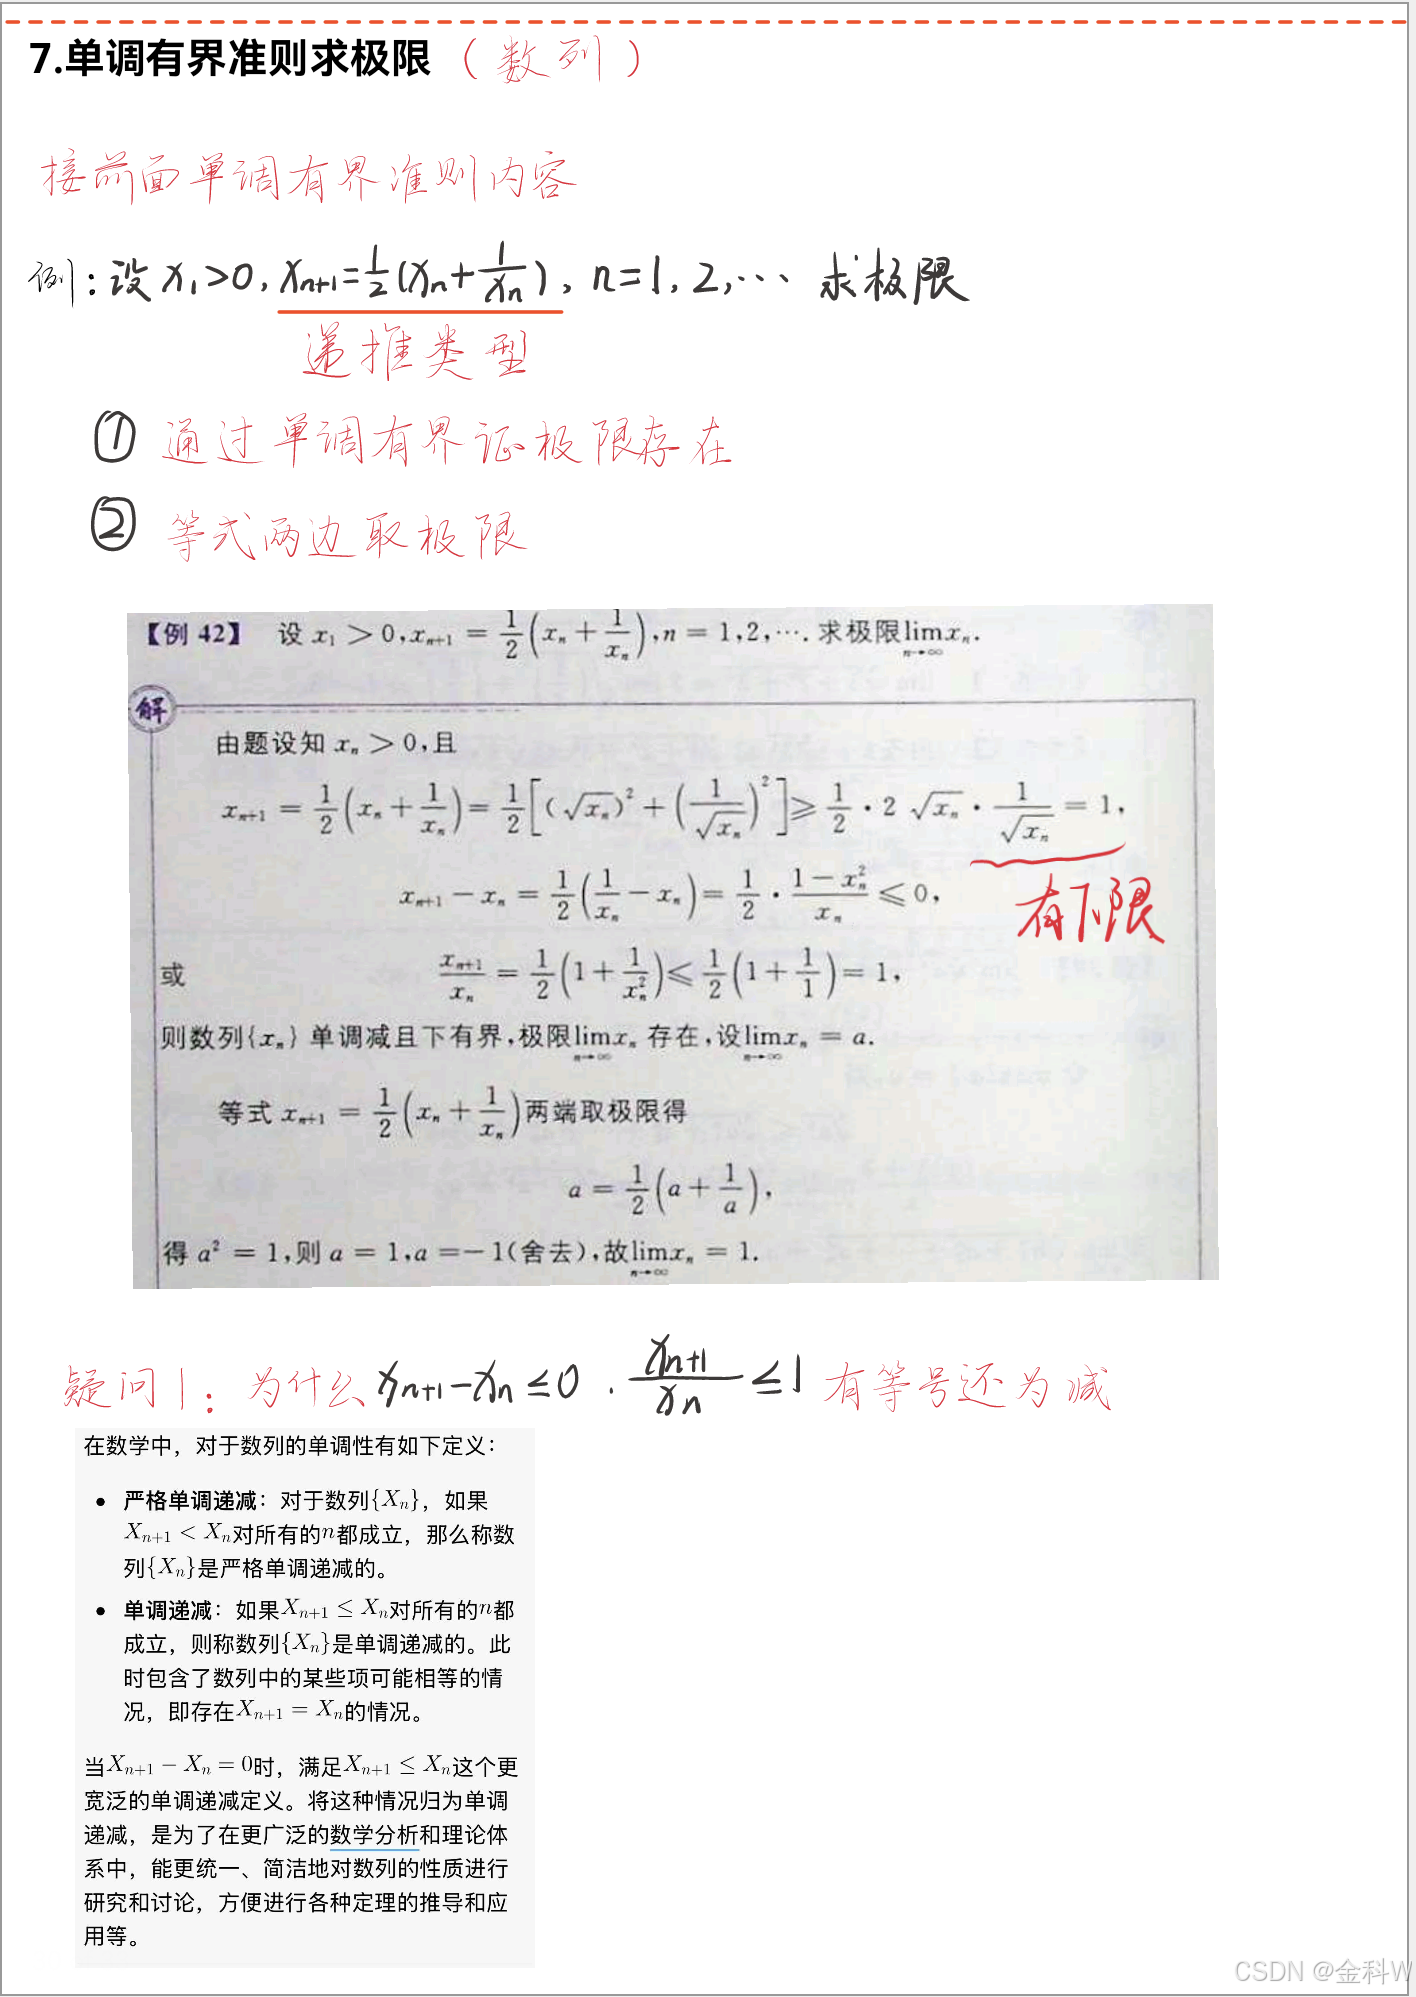 7.单调有界准则求极限（数列）
接前面单调有界准则内容
例：设 x₁>0, xₙ₊₁=½(xₙ+1/xₙ), n=1,2,⋯ 求极限
递推类型
① 通过单调有界证极限存在
② 等式两边取极限
【例 42】 设 x₁ > 0, xₙ₊₁ = 1/2(xₙ + 1/xₙ), n = 1,2,⋯. 求极限 lim_{n→∞} xₙ.
解
由题设知 xₙ > 0,且
xₙ₊₁ = 1/2(xₙ + 1/xₙ) = 1/2[(√xₙ)² + (1/√xₙ)²] ⩾ 1/2 · 2 √xₙ · 1/√xₙ = 1,
xₙ₊₁ − xₙ = 1/2(1/xₙ − xₙ) = 1/2 · (1 − xₙ²)/xₙ ⩽ 0,
有下限
或 xₙ₊₁/xₙ = 1/2(1 + 1/xₙ²) ⩽ 1/2(1 + 1/1) = 1,
则数列{xₙ} 单调减且下有界,极限 lim_{n→∞} xₙ 存在,设 lim_{n→∞} xₙ = a.
等式 xₙ₊₁ = 1/2(xₙ + 1/xₙ) 两端取极限得
a = 1/2(a + 1/a),
得 a² = 1,则 a = 1,a = − 1(舍去),故 lim_{n→∞} xₙ = 1.
疑问1：为什么 xₙ₊₁−xₙ≤0 . xₙ₊₁/xₙ ≤1 有等号还为减
在数学中，对于数列的单调性有如下定义：
• 严格单调递减：对于数列{Xₙ}，如果
Xₙ₊₁ < Xₙ对所有的n都成立，那么称数
列{Xₙ}是严格单调递减的。
• 单调递减：如果Xₙ₊₁ ≤ Xₙ对所有的n都
成立，则称数列{Xₙ}是单调递减的。此
时包含了数列中的某些项可能相等的情
况，即存在Xₙ₊₁ = Xₙ的情况。
当Xₙ₊₁ − Xₙ = 0时，满足Xₙ₊₁ ≤ Xₙ这个更
宽泛的单调递减定义。将这种情况归为单调
递减，是为了在更广泛的数学分析和理论体
系中，能更统一、简洁地对数列的性质进行
研究和讨论，方便进行各种定理的推导和应
用等。
CSDN @金科W